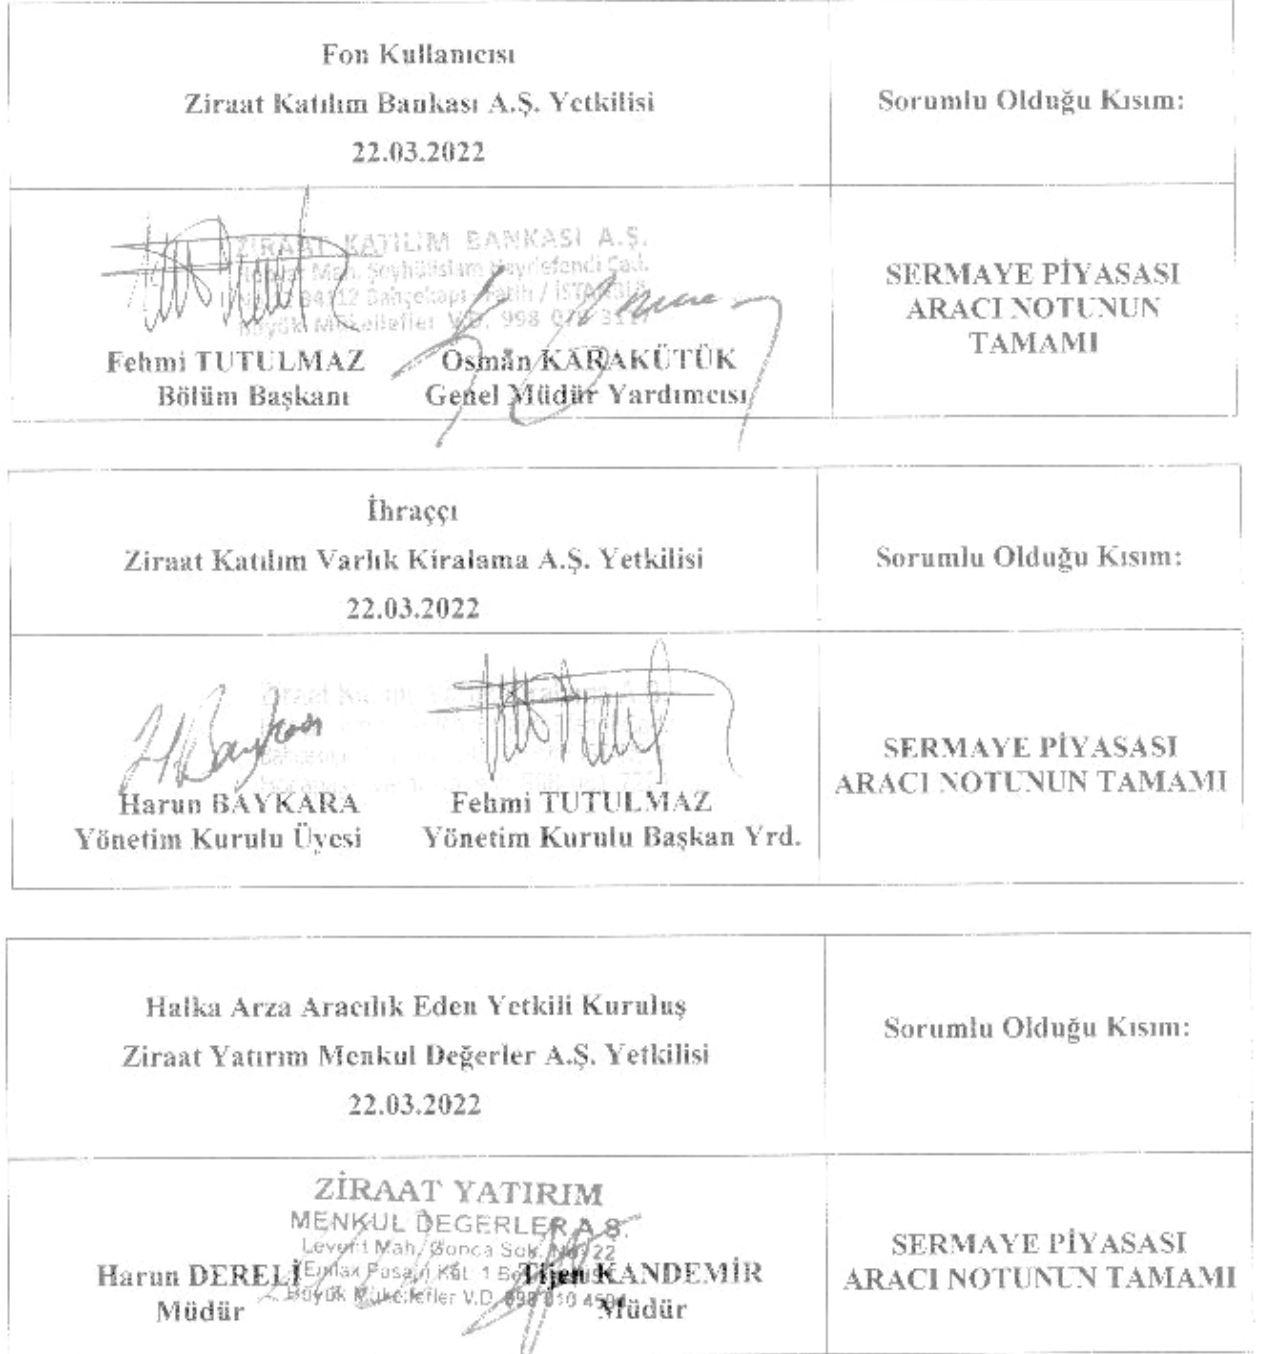 Fon Kullanıcısı
Ziraat Katılım Bankası A.Ş. Yetkilisi
22.03.2022
Sorumlu Olduğu Kısım:
ZİRAAT KATILIM BANKASI A.Ş.
Mah. Şeyhülislam Hayriefendi Cad.
34112 Bahçekapı - Fatih / İSTANBUL
Büyük Mükellefler V.D. 998 078 3117
Fehmi TUTULMAZ
Bölüm Başkanı
Osman KARAKÜTÜK
Genel Müdür Yardımcısı
SERMAYE PİYASASI
ARACI NOTUNUN
TAMAMI
İhraççı
Ziraat Katılım Varlık Kiralama A.Ş. Yetkilisi
22.03.2022
Sorumlu Olduğu Kısım:
Harun BAYKARA
Yönetim Kurulu Üyesi
Fehmi TUTULMAZ
Yönetim Kurulu Başkan Yrd.
SERMAYE PİYASASI
ARACI NOTUNUN TAMAMI
Halka Arza Aracılık Eden Yetkili Kuruluş
Ziraat Yatırım Menkul Değerler A.Ş. Yetkilisi
22.03.2022
Sorumlu Olduğu Kısım:
ZİRAAT YATIRIM
MENKUL DEGERLER A.Ş.
Levent Mah. Gonca Sok. No: 22
Büyük Mükellefler V.D.
Harun DERELİ
Müdür
Tijen KANDEMİR
Müdür
SERMAYE PİYASASI
ARACI NOTUNUN TAMAMI